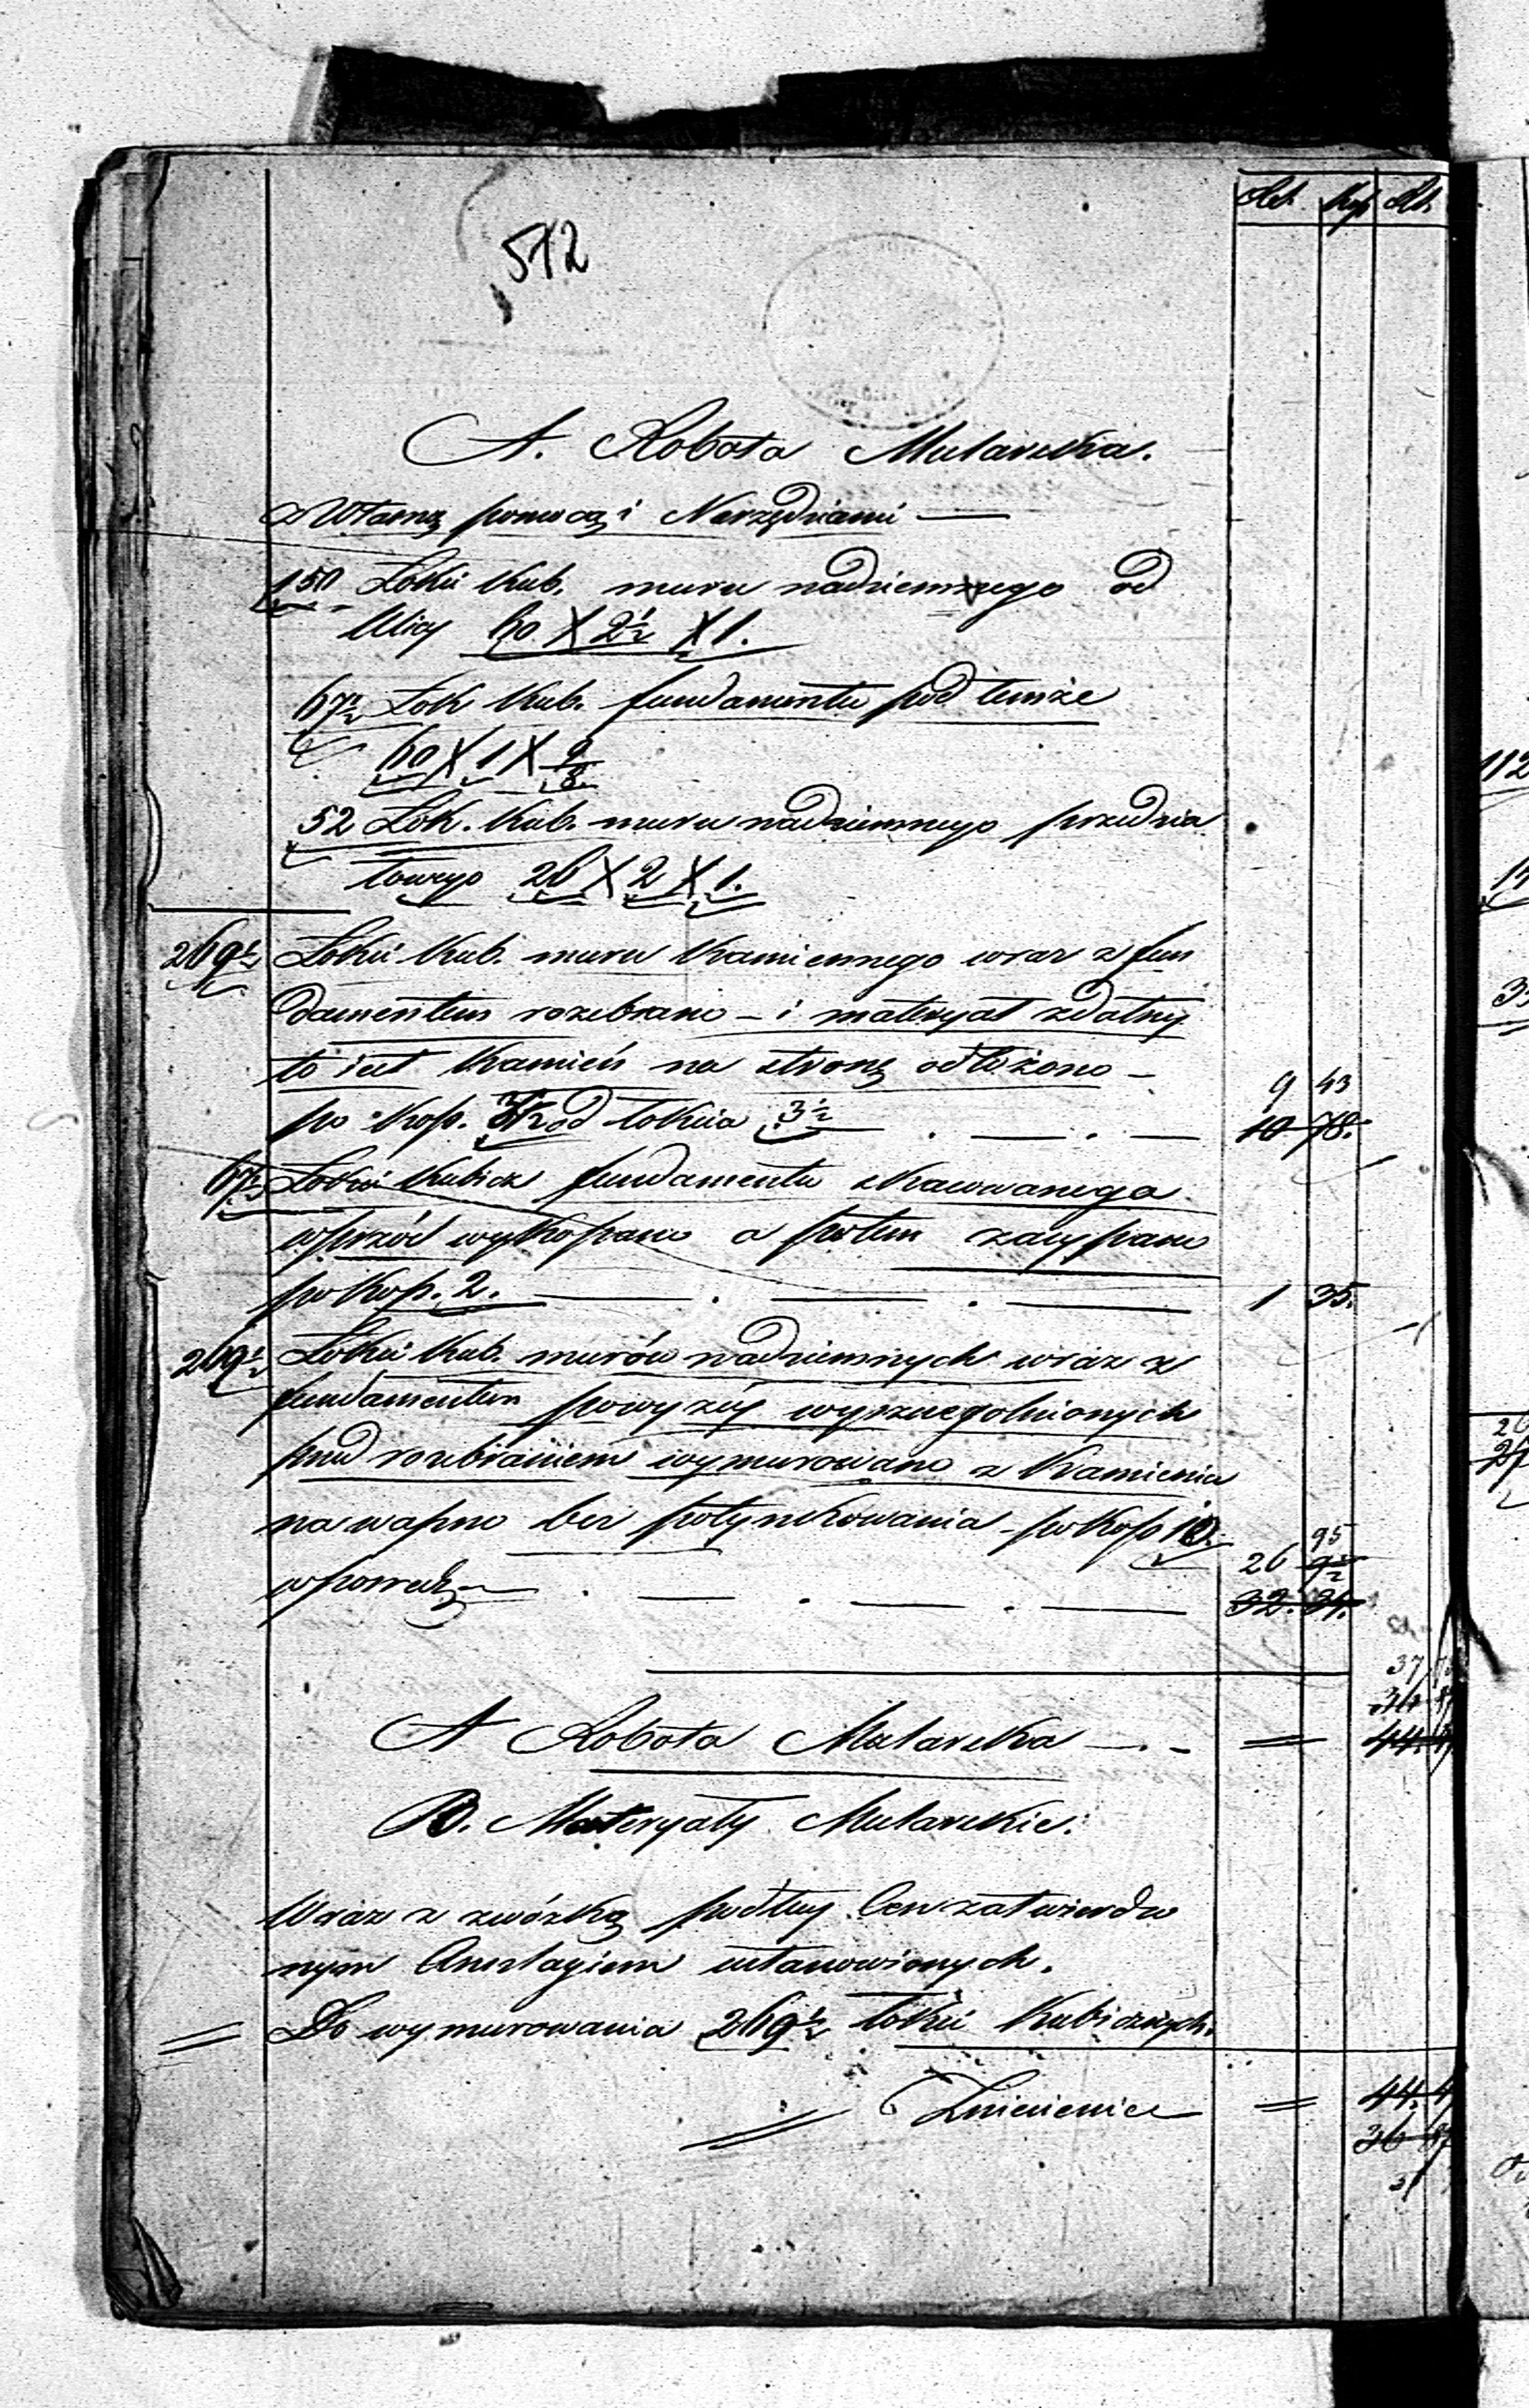 Rb. Kop Rb.
512
A. Robota Mularska.
z Własną pomocą i Narzędziami —
150 Łokci Kub. muru nadziemnego od
Ulicy 60 X 2½ X 1.
67½ Łok Kub. fundamentu pod temże
60 X 1 X 9/8
52 Łok. Kub. muru nadziemnego przedzia
łowego 26 X 2 X 1.
269½ Łokci Kub. muru Kamiennego wraz z fun
damentem rozebrano – i materyał zdatny
to jest Kamień na stronę odłożono –
9 43
po Kop. od łokcia 3½ — . — . — 10 78.
67½ Łokci Kubicz fundamentu
wprzód wykopano a potem zasypano
po Kop. 2. — . — . — 1 35.
269½ Łokci Kub. murów nadziemnych wraz z
fundamentem powyżéj wyszczególnionych
przed rozebraniem wymurowano z Kamienia
na wapno bez potynkowania – po Kop 10.
95
26 9½
— . — . — 32. 34.
37
36
A Robota Mularska — . – = 44.
B. Materyały Mularskie.
Wraz z zwózką podług Cen zatwierdzo
nym Anszlagiem ustanowionych.
= Do wymurowania 269½ łokci Kubicznych.
= 44. 4
36 87